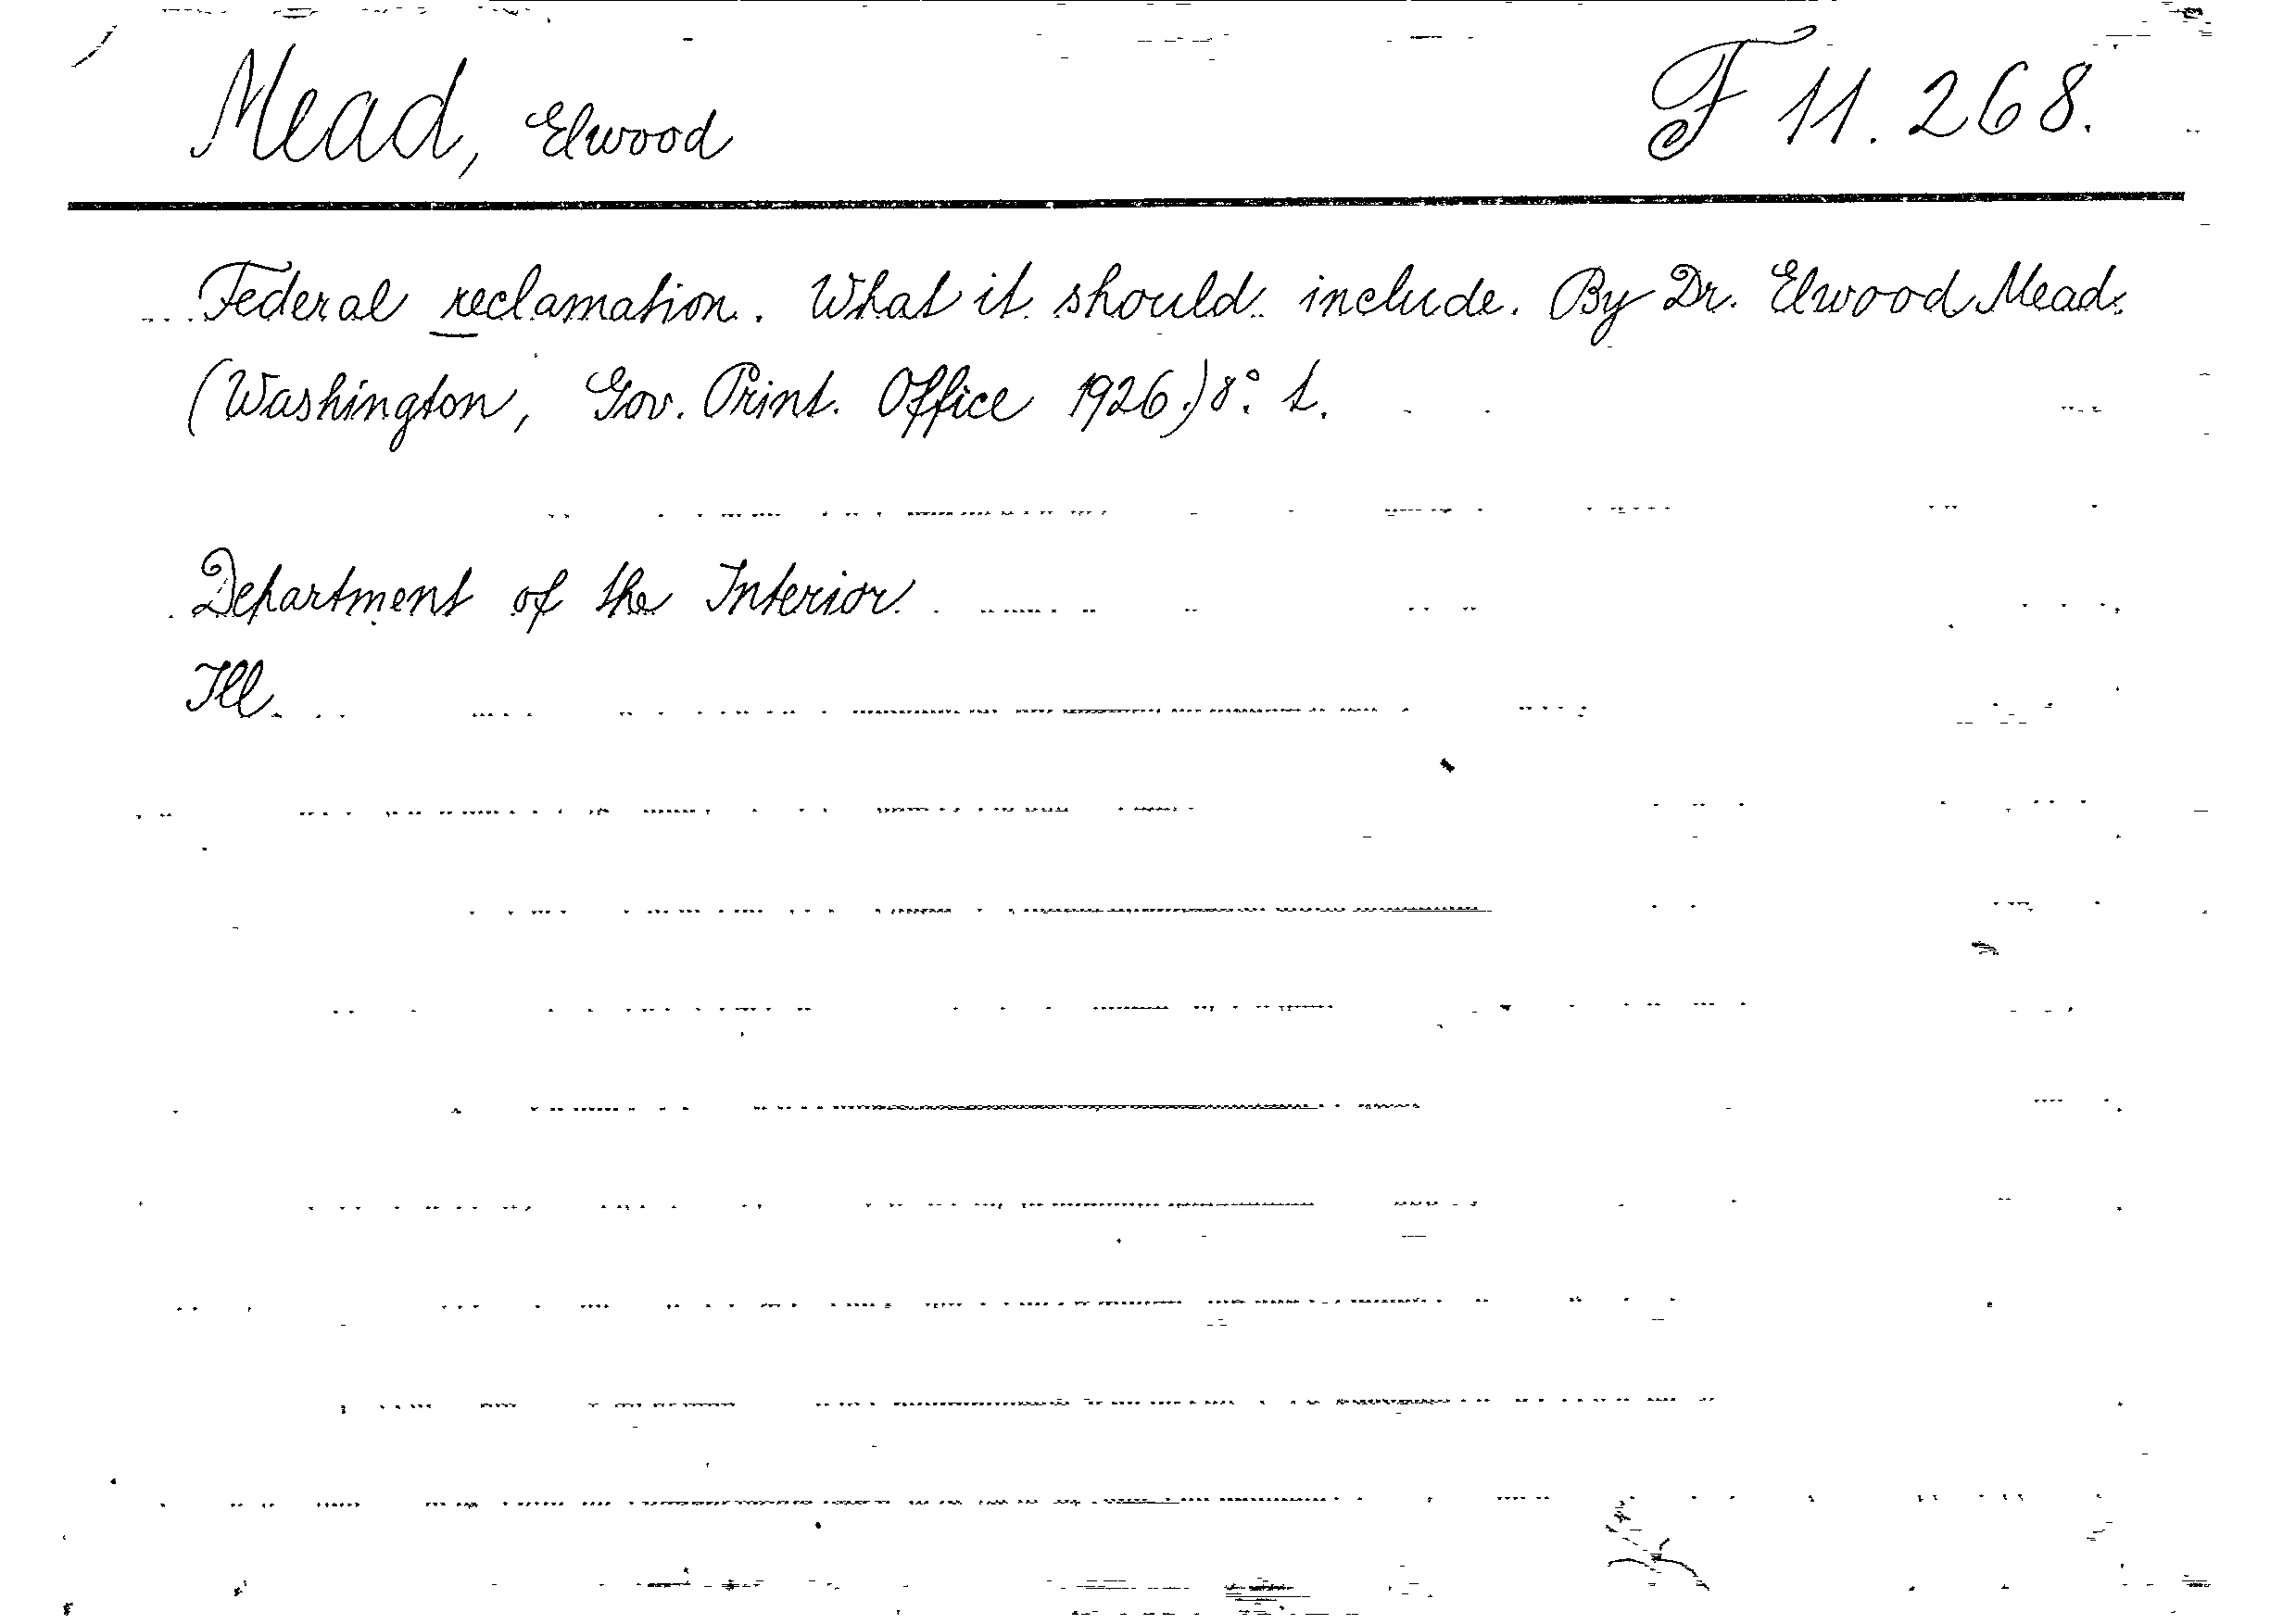 Mead, Elwood F 11.268.
Federal reclamation. What it should include. By Dr. Elwood Mead.
(Washington, Gov. Print. Office 1926.) 8°. t.
Department of the Interior.
Ill.